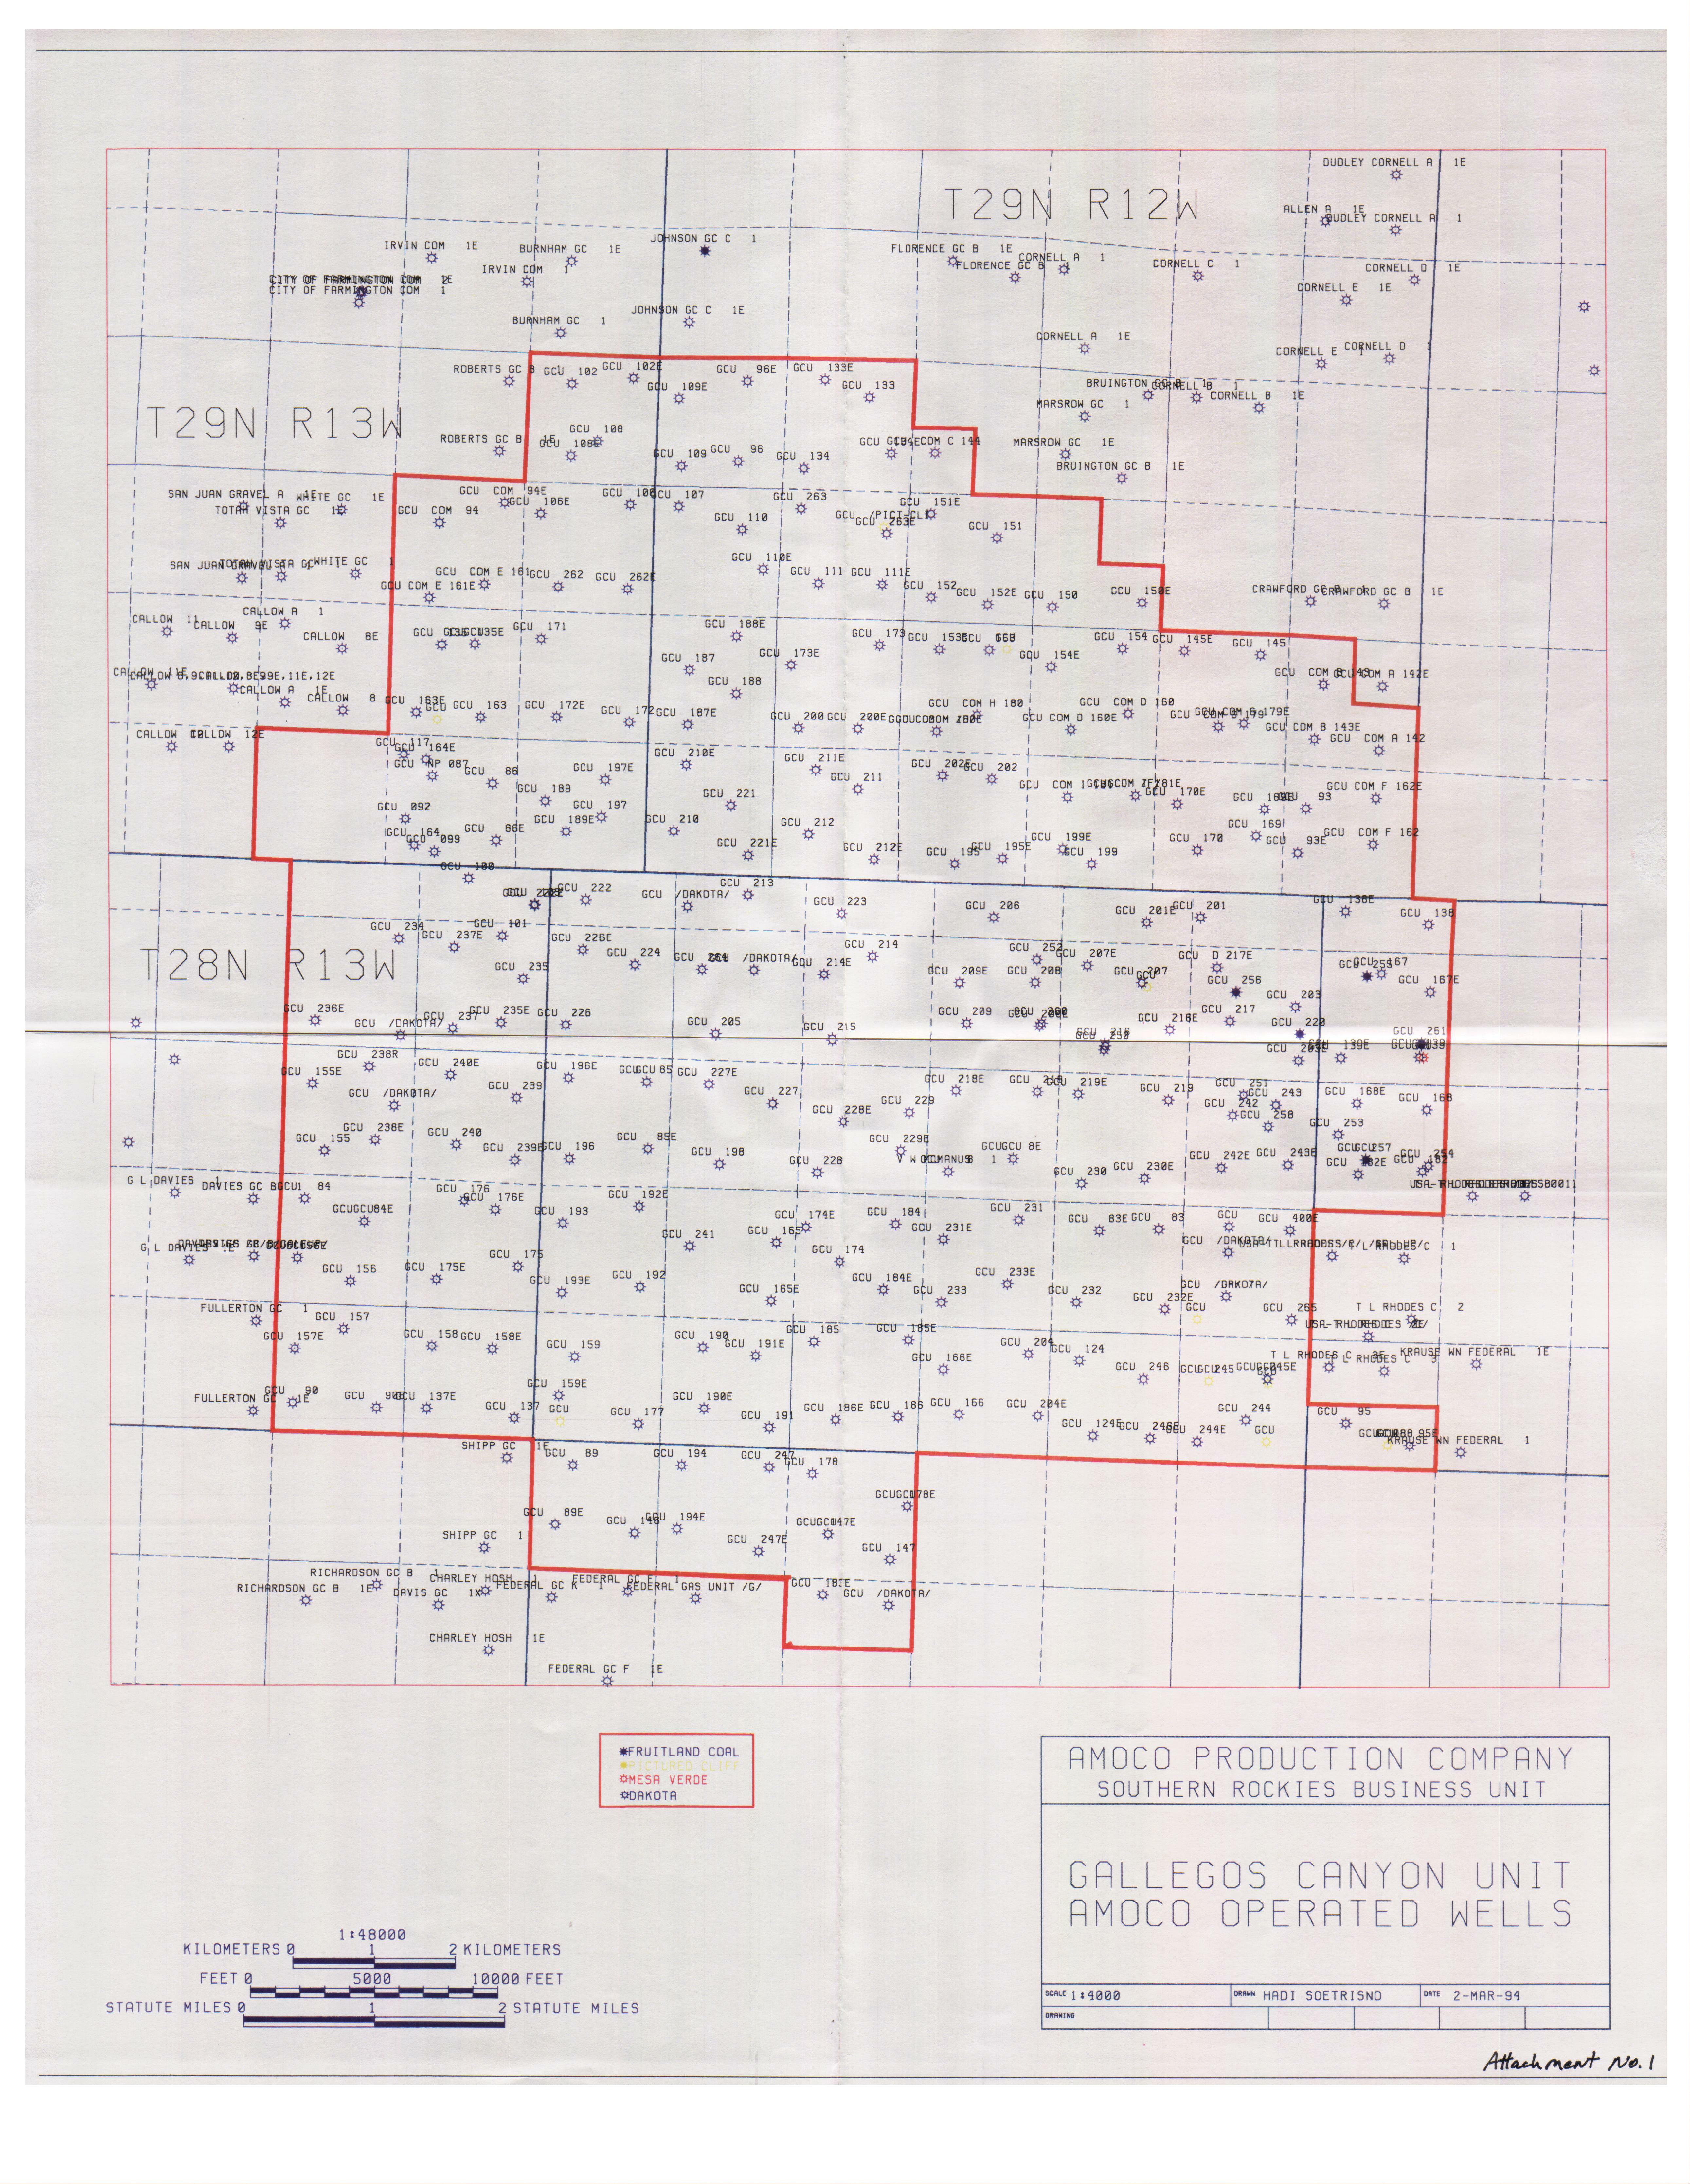 DUDLEY CORNELL A 1E
T29N R12W
ALLEN A 1E
DUDLEY CORNELL A 1
IRVIN COM 1E
BURNHAM GC 1E
JOHNSON GC C 1
FLORENCE GC B 1E
CORNELL A 1
FLORENCE GC B 1
CORNELL C 1
CORNELL D 1E
IRVIN COM 1
CITY OF FARMINGTON COM 1E
CITY OF FARMINGTON COM 1
CORNELL E 1E
JOHNSON GC C 1E
BURNHAM GC 1
CORNELL A 1E
CORNELL E 1
CORNELL D 1
ROBERTS GC B 1
GCU 102
GCU 102E
GCU 96E
GCU 133E
GCU 109E
GCU 133
BRUINGTON GC B 1
CORNELL B 1
CORNELL B 1E
MARSROW GC 1
T29N R13W
ROBERTS GC B 1E
GCU 108
GCU 108E
GCU COM C 144
MARSROW GC 1E
GCU 109
GCU 96
GCU 134
BRUINGTON GC B 1E
SAN JUAN GRAVEL A 1E
WHITE GC 1E
TOTAH VISTA GC 1E
GCU COM 94E
GCU 106E
GCU COM 94
GCU 106
GCU 107
GCU 263
GCU 151E
GCU 110
GCU /PICT-CLI
GCU 263E
GCU 151
SAN JUAN GRAVEL A 1
TOTAH VISTA GC 1
WHITE GC 1
GCU COM E 161
GCU COM E 161E
GCU 262
GCU 262E
GCU 110E
GCU 111
GCU 111E
GCU 152
GCU 152E
GCU 150
GCU 150E
CRAWFORD GC B 1
CRAWFORD GC B 1E
CALLOW 11
CALLOW 9E
CALLOW A 1
CALLOW 8E
GCU 135E
GCU 171
GCU 188E
GCU 187
GCU 173E
GCU 173
GCU 153E
GCU 154E
GCU 154
GCU 145E
GCU 145
CALLOW 11E
CALLOW A 1E
CALLOW 8
GCU 188
GCU COM B 143
GCU COM A 142E
GCU 163E
GCU
GCU 163
GCU 172E
GCU 172
GCU 187E
GCU 200
GCU 200E
GCU COM H 180
GCU COM D 160E
GCU COM D 160
GCU COM G 179E
GCU COM B 143E
GCU COM A 142
CALLOW 12E
GCU 117
GCU 164E
GCU NP 087
GCU 86
GCU 197E
GCU 210E
GCU 211E
GCU 211
GCU 202E
GCU 202
GCU 170E
GCU 93
GCU COM F 162E
GCU 092
GCU 189
GCU 189E
GCU 197
GCU 210
GCU 221
GCU 221E
GCU 212
GCU 212E
GCU 195
GCU 195E
GCU 199E
GCU 199
GCU 170
GCU 169
GCU 93E
GCU COM F 162
GCU 164
GCU 099
GCU 86E
GCU 100
GCU 222
GCU /DAKOTA/
GCU 213
GCU 223
GCU 206
GCU 201E
GCU 201
GCU 138E
GCU 138
GCU 234
GCU 237E
GCU 101
GCU 226E
GCU 224
GCU /DAKOTA/
GCU 214E
GCU 214
T28N R13W
GCU 235
GCU 209E
GCU 252
GCU 208
GCU 207E
GCU 207
GCU D 217E
GCU 256
GCU 255
GCU 167
GCU 167E
GCU 236E
GCU /DAKOTA/
GCU 237
GCU 235E
GCU 226
GCU 205
GCU 215
GCU 209
GCU 216E
GCU 217
GCU 203
GCU 220
GCU 261
GCU 139E
GCU 238R
GCU 155E
GCU 240E
GCU 239
GCU 196E
GCU 85
GCU 227E
GCU 227
GCU 218E
GCU 219E
GCU 219
GCU 251
GCU 243
GCU 242
GCU 258
GCU 168E
GCU 168
GCU 253
GCU /DAKOTA/
GCU 238E
GCU 155
GCU 240
GCU 239E
GCU 196
GCU 85E
GCU 198
GCU 228E
GCU 228
GCU 229
GCU 229E
GCU 8E
GCU 230
GCU 230E
GCU 242E
GCU 243E
GCU 257
GCU 254
G L DAVIES 1
DAVIES GC B 1
GCU 84
GCU 84E
GCU 176
GCU 176E
GCU 193
GCU 192E
GCU 241
GCU 165
GCU 174E
GCU 184
GCU 231E
GCU 231
GCU 83E
GCU 83
GCU
GCU 400E
GCU /DAKOTA/
T L RHODES C 1
G L DAVIES 1E
GCU 156
GCU 175E
GCU 175
GCU 193E
GCU 192
GCU 165E
GCU 174
GCU 184E
GCU 233
GCU 233E
GCU 232
GCU 232E
GCU /DAKOTA/
GCU
GCU 265
T L RHODES C 2
FULLERTON GC 1
GCU 157
GCU 157E
GCU 158
GCU 158E
GCU 159
GCU 190
GCU 191E
GCU 185
GCU 185E
GCU 166E
GCU 204
GCU 124
GCU 246
GCU 245
GCU 245E
T L RHODES C 3E
T L RHODES C 3
KRAUSE WN FEDERAL 1E
FULLERTON GC 1E
GCU 90
GCU 90E
GCU 137E
GCU 137
GCU 159E
GCU
GCU 177
GCU 190E
GCU 191
GCU 186E
GCU 186
GCU 166
GCU 204E
GCU 124E
GCU 246E
GCU 244E
GCU 244
GCU
GCU 95
KRAUSE WN FEDERAL 1
SHIPP GC 1E
GCU 89
GCU 194
GCU 247
GCU 178
GCU 89E
GCU 148
GCU 194E
GCU 247E
GCU 178E
GCU 147E
GCU 147
SHIPP GC 1
RICHARDSON GC B 1
RICHARDSON GC B 1E
CHARLEY HOSH 1
DAVIS GC 1X
FEDERAL GC K 1
FEDERAL GC F 1
FEDERAL GAS UNIT /G/
GCU /DAKOTA/
CHARLEY HOSH 1E
FEDERAL GC F 1E
FRUITLAND COAL
PICTURED CLIFF
MESA VERDE
DAKOTA
AMOCO PRODUCTION COMPANY
SOUTHERN ROCKIES BUSINESS UNIT
GALLEGOS CANYON UNIT
AMOCO OPERATED WELLS
SCALE 1:4000
DRAWN HADI SOETRISNO
DATE 2-MAR-94
DRAWING
1:48000
KILOMETERS 0 1 2 KILOMETERS
FEET 0 5000 10000 FEET
STATUTE MILES 0 1 2 STATUTE MILES
Attachment No. 1